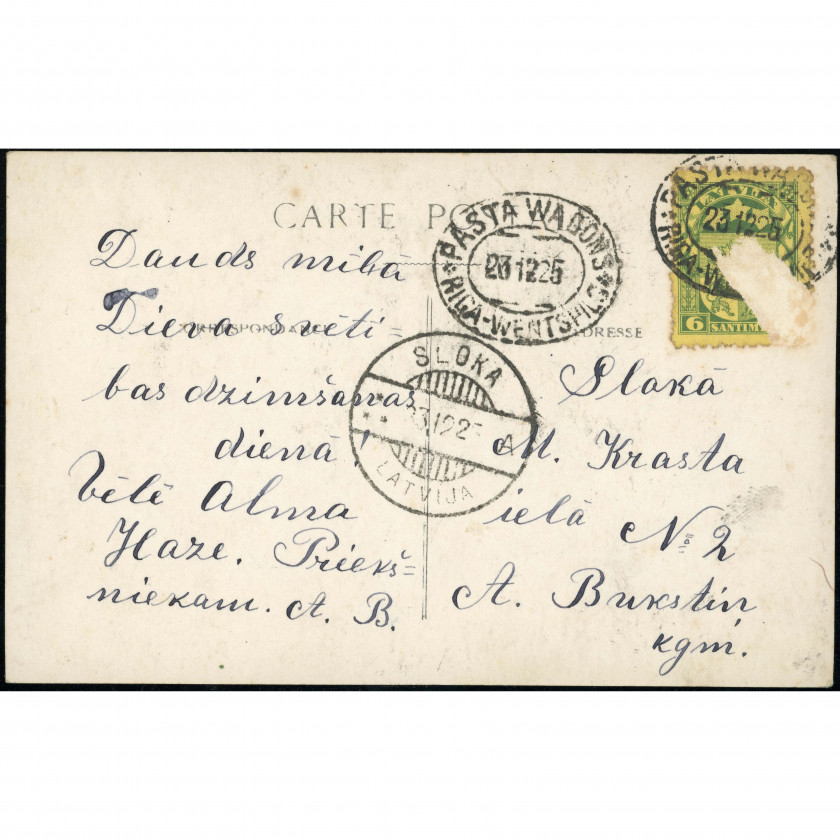 CARTE PO
PASTA WAGONS
23 12 25
RIGA-WENTSPILS
PASTA WA
LATVIJA
23 12 25
RIGA-WE
6 SANTIM
Daudz mīļā
Dieva svēti-
bas dzimšanas
dienā!
Vēlē Alma
Haze. Priekš=
niekam. A. B.
CORRESPONDANCE
ADRESSE
SLOKA
23 12 25
A
LATVIJA
Slokā
M. Krasta
ielā № 2
A. Bukstin
kgm.